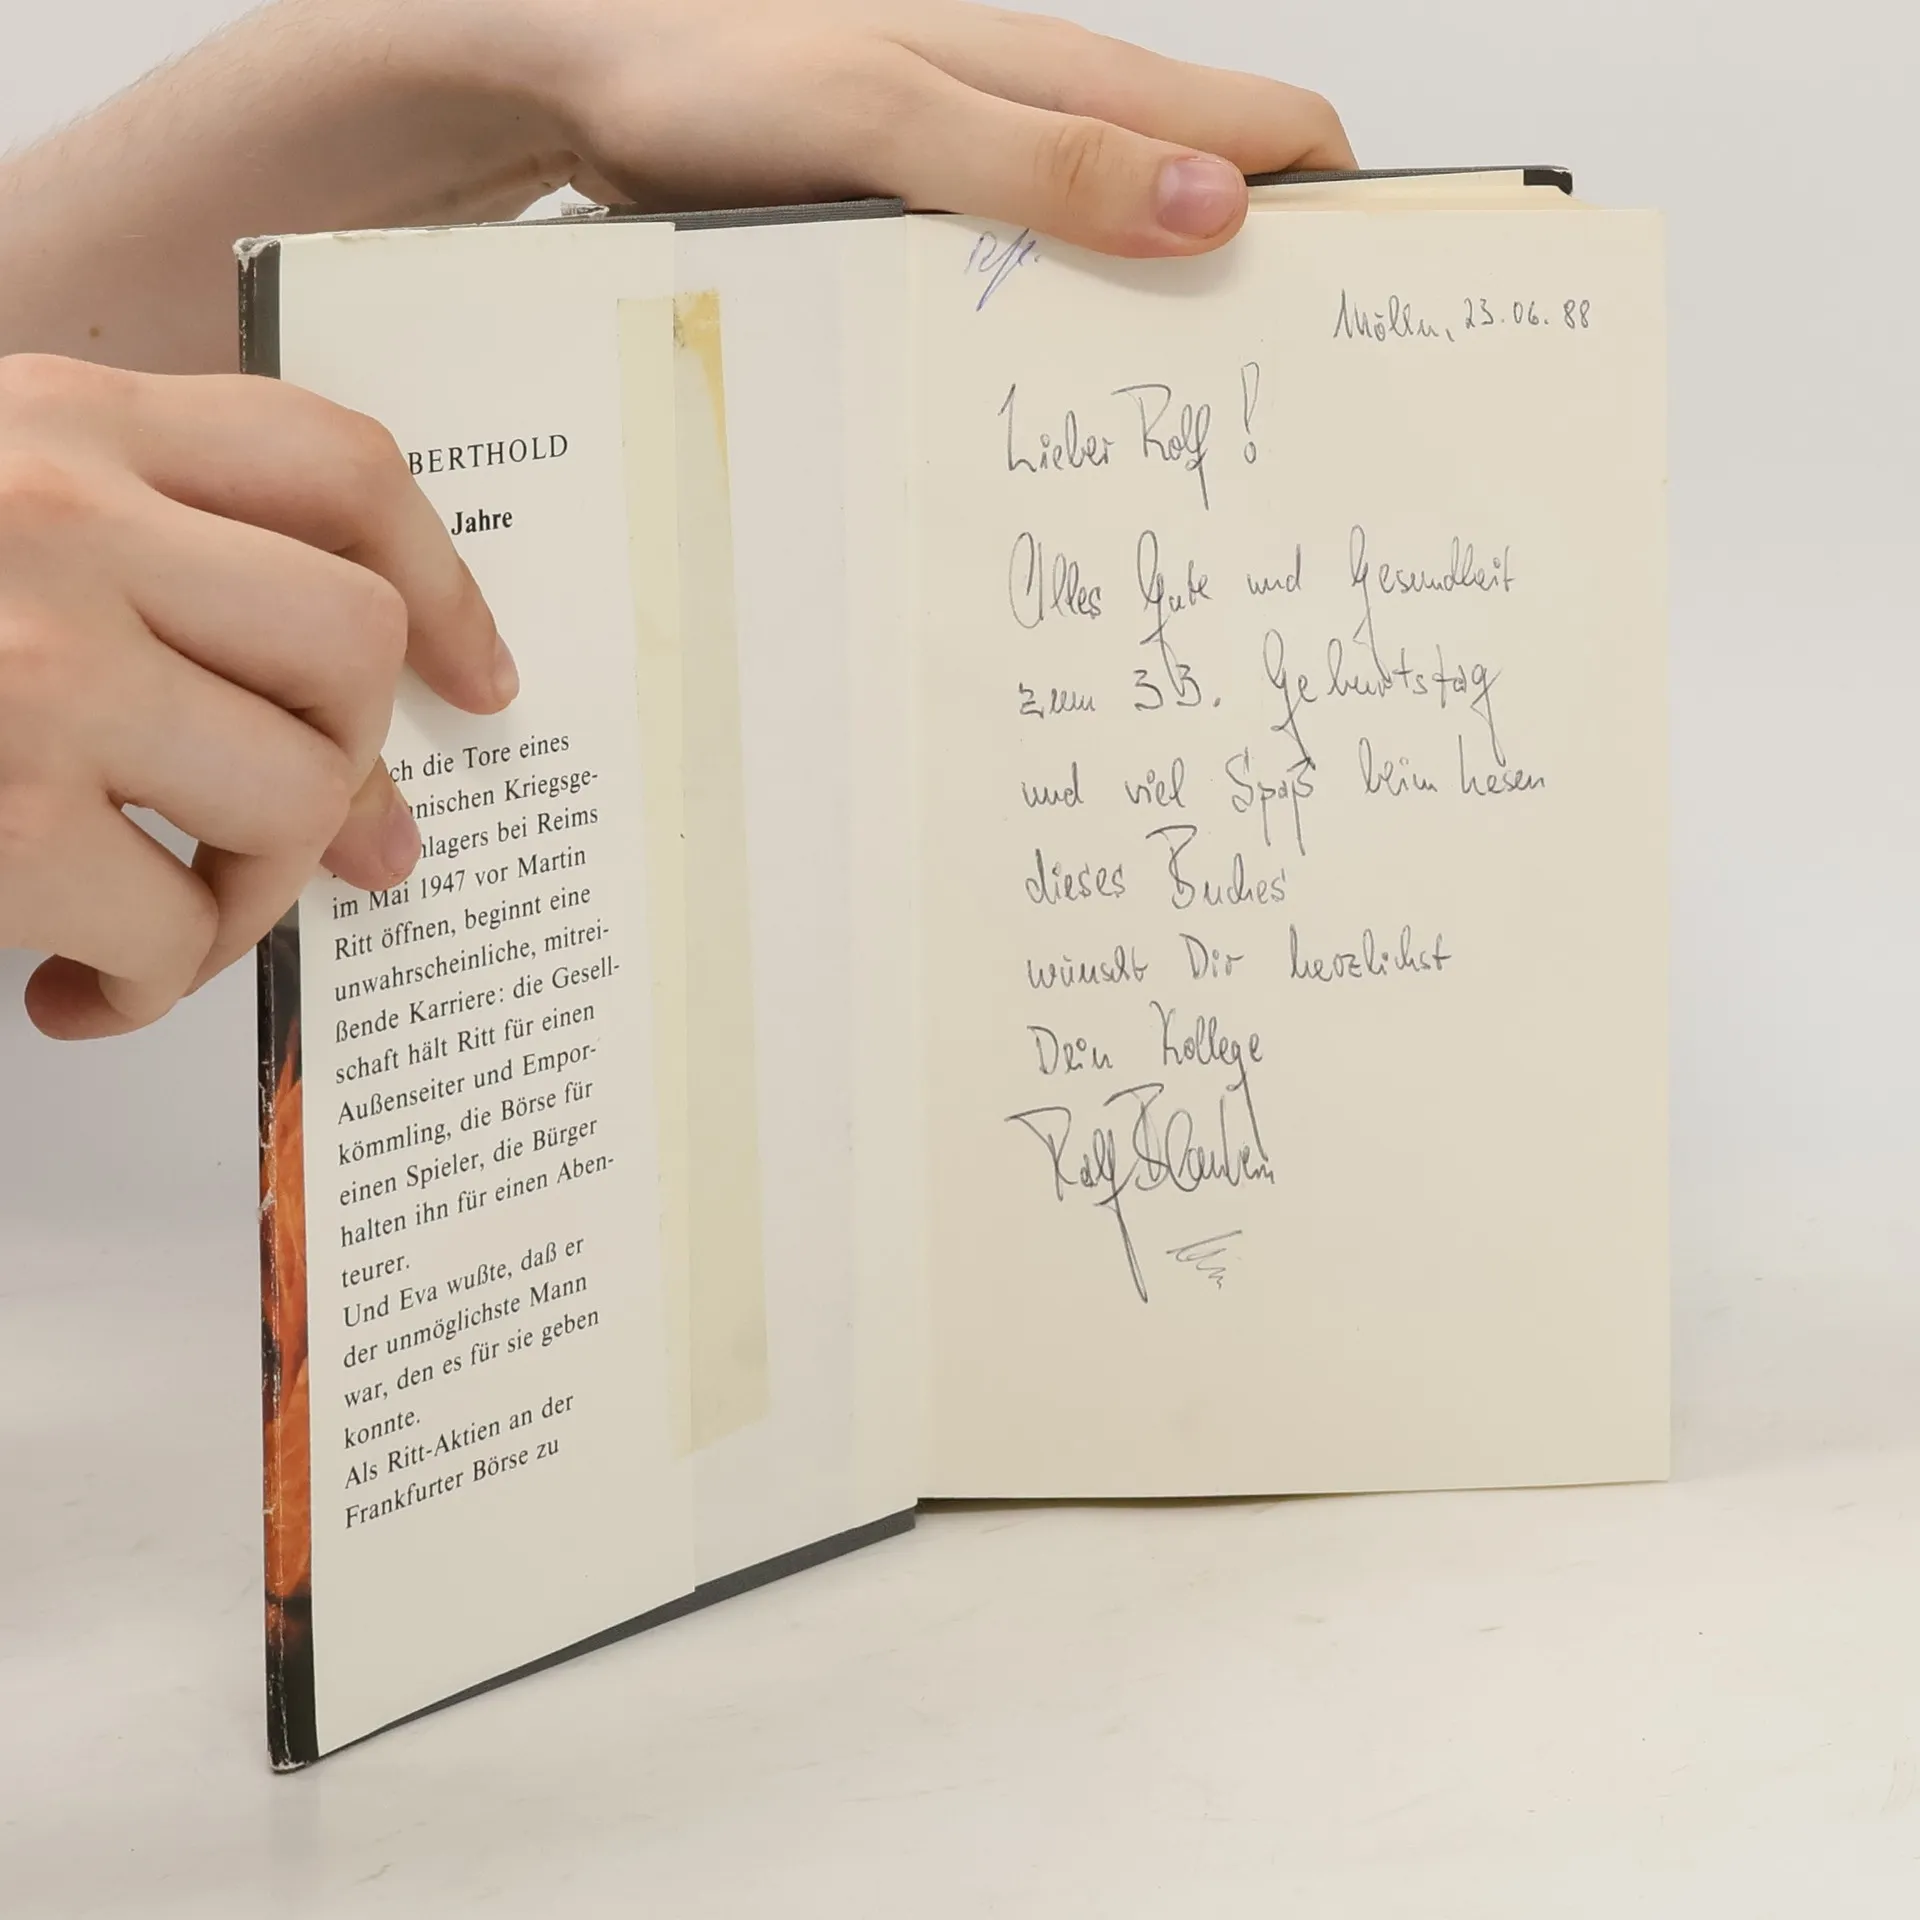 BERTHOLD
Jahre
ch die Tore eines
nischen Kriegsge-
nlagers bei Reims
im Mai 1947 vor Martin
Ritt öffnen, beginnt eine
unwahrscheinliche, mitrei-
ßende Karriere: die Gesell-
schaft hält Ritt für einen
Außenseiter und Empor-
kömmling, die Börse für
einen Spieler, die Bürger
halten ihn für einen Aben-
teurer.
Und Eva wußte, daß er
der unmöglichste Mann
war, den es für sie geben
konnte.
Als Ritt-Aktien an der
Frankfurter Börse zu
Mölln, 23.06.88
Lieber Rolf!
Alles Gute und Gesundheit
zum 33. Geburtstag
und viel Spaß beim Lesen
dieses Buches
wünscht Dir herzlichst
Dein Kollege
Ralf